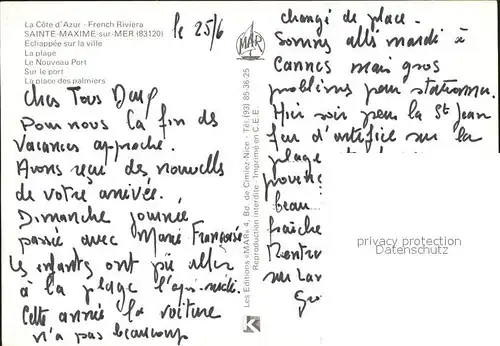 La Côte d'Azur - French Riviera
SAINTE-MAXIME-sur-MER (83120)
Echappée sur la ville
La plage
Le Nouveau Port
Sur le port
La place des palmiers
le 25/6
Chers Tous Deux
Pour nous la fin des
vacances approche.
Avons reçu des nouvelles
de votre arrivée.
Dimanche journée
passée avec Marie Françoise
les enfants ont pu aller
à la plage l'après-midi.
Cette année la voiture
n'a pas beaucoup
MAR
Les Editions «MAR» 4, Bd. de Cimiez-Nice - Tél. (93) 85-36-25
Reproduction interdite - Imprimé en C.E.E.
K
changé de place.
Sommes allés mardi à
Cannes mais gros
problèmes pour stationner.
Hier soir pour la St Jean
feu d'artifice sur la
plage
beau
fraîche
Rentre
sur
privacy protection
Datenschutz